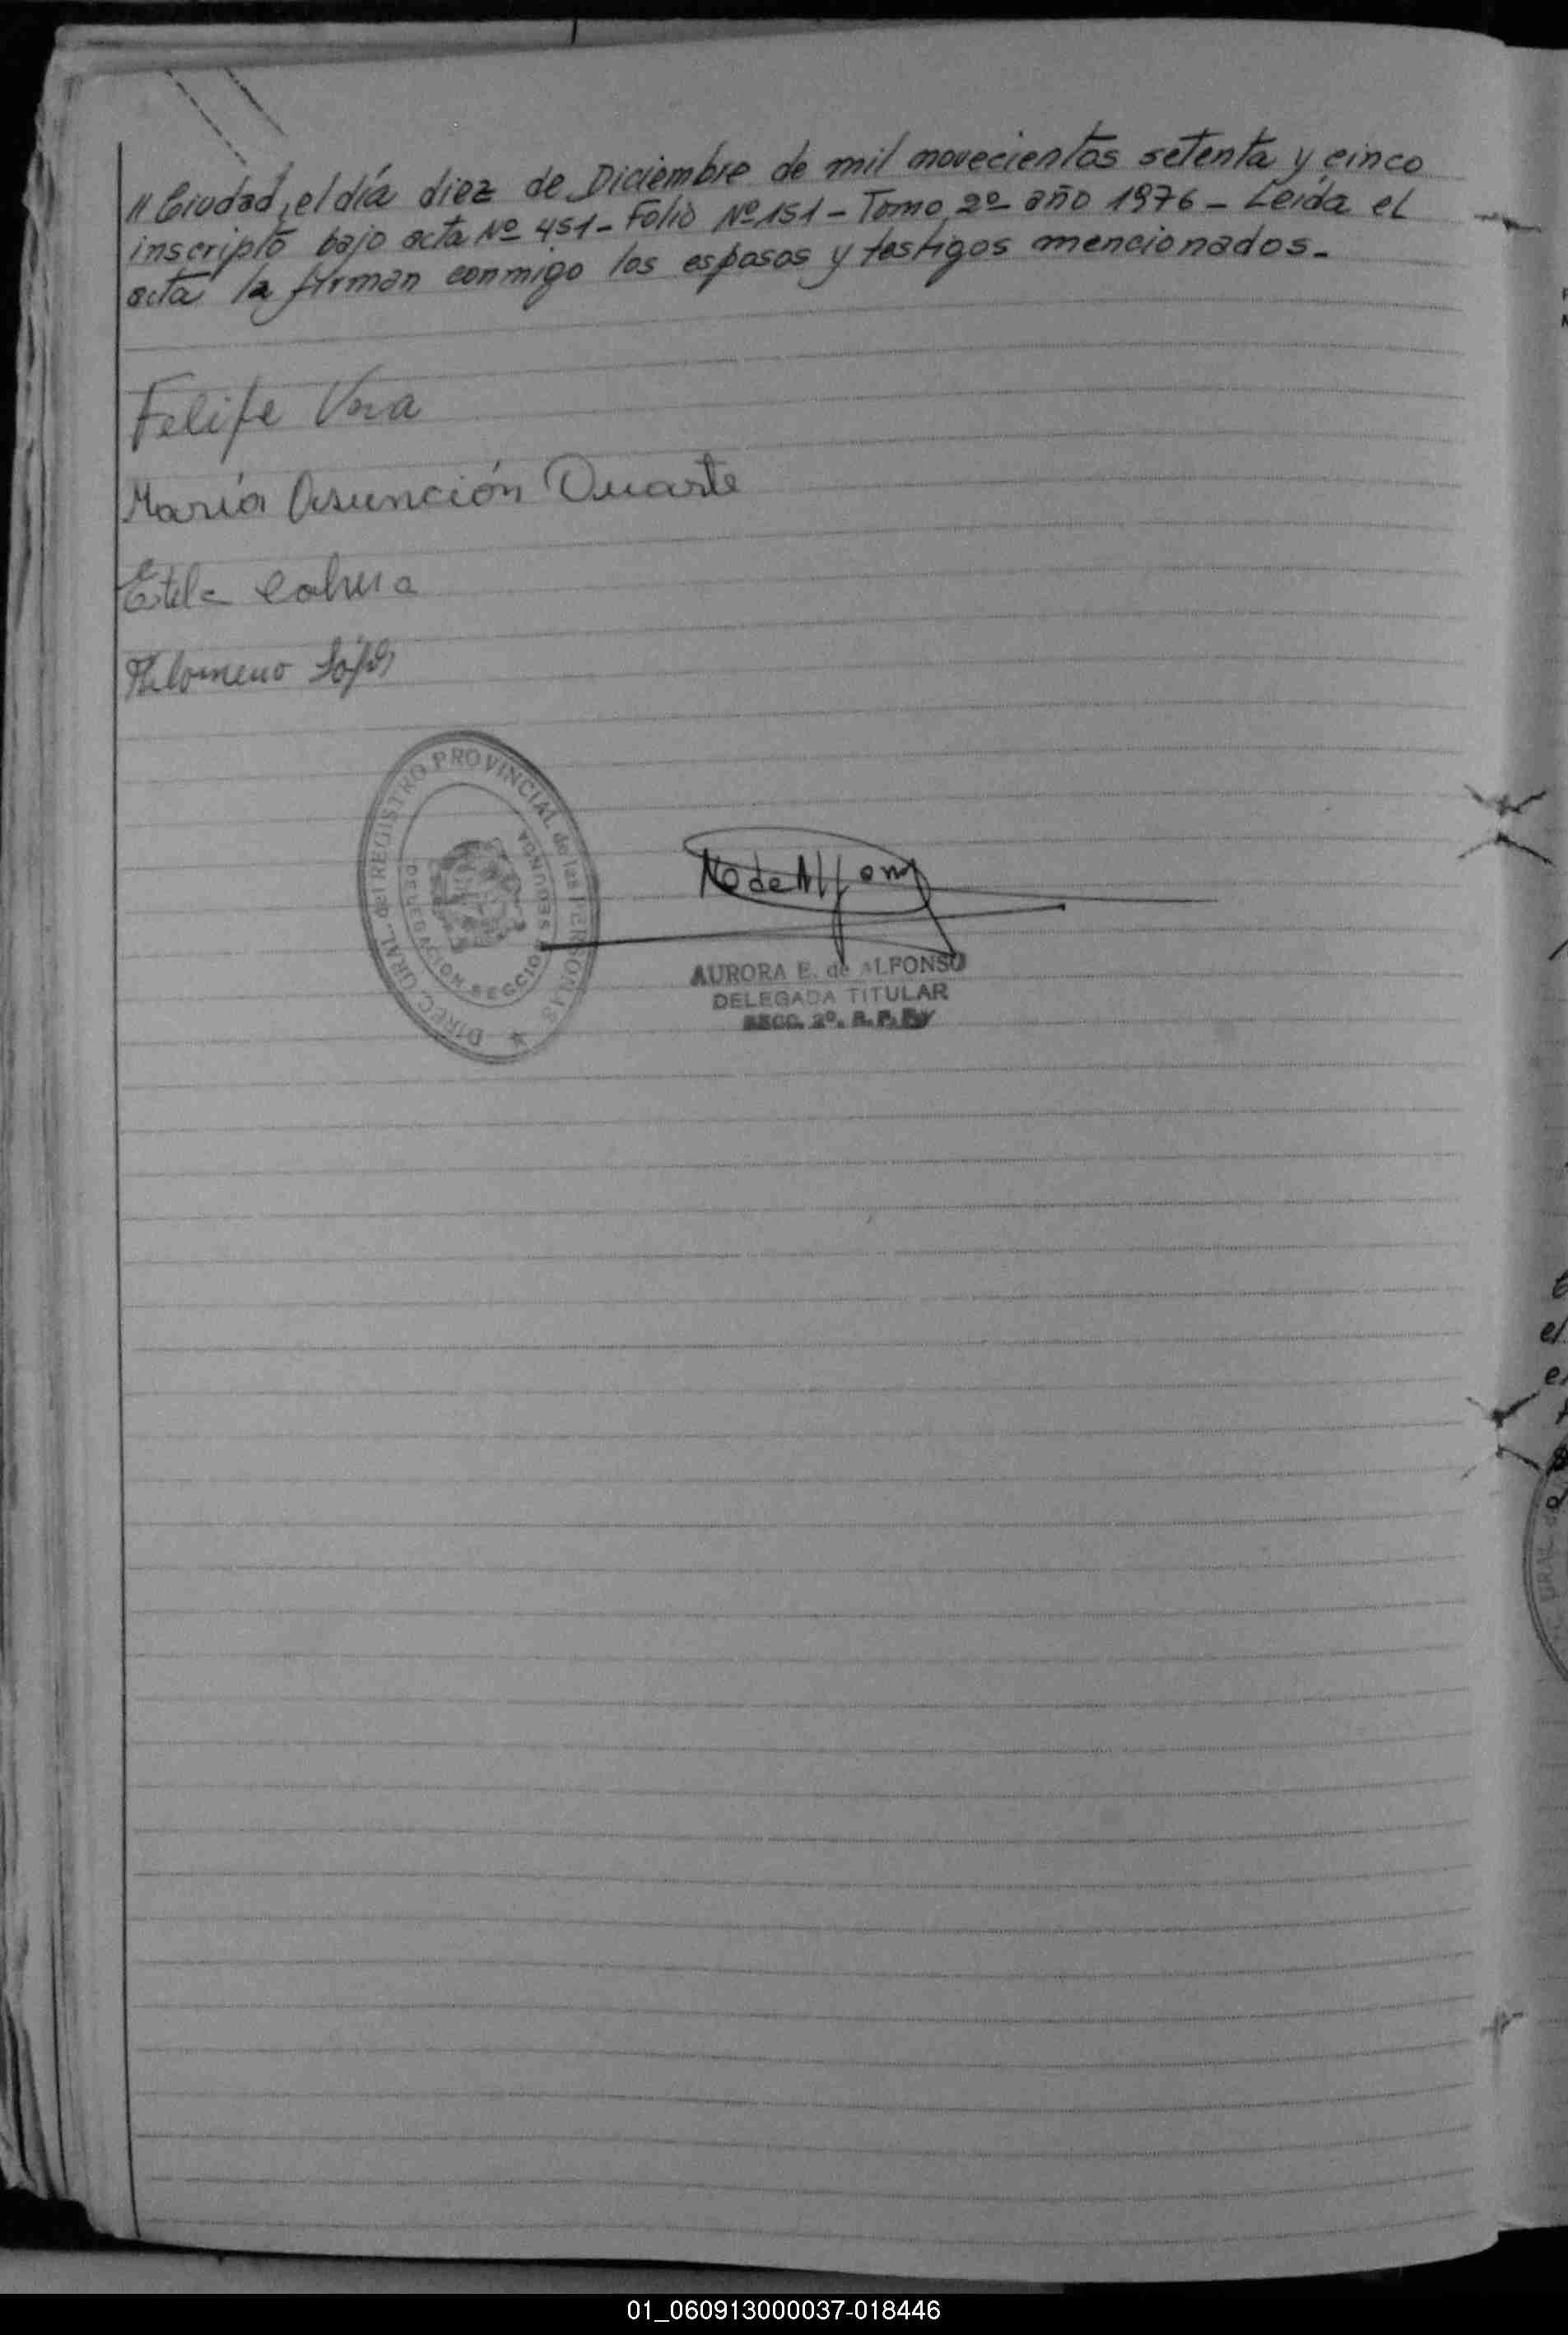 // Ciudad, el día diez de Diciembre de mil novecientos setenta y cinco
inscripto bajo acta Nº 451 - Folio Nº 151 - Tomo 2º año 1976 - Leída el
acta la firman conmigo los esposos y testigos mencionados.-
Felipe Vera
María Asunción Duarte
Estela Cabrera
Filomeno López
DIREC. GRAL. del REGISTRO PROVINCIAL de las PERSONAS
DELEGACION SECCION SEGUNDA
AURORA E. de ALFONSO
DELEGADA TITULAR
SECC. 2º. R. P. P.
01_060913000037-018446